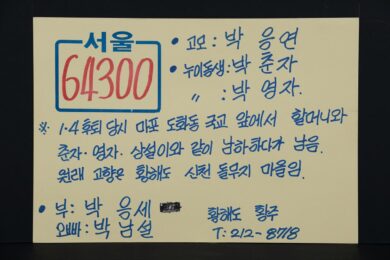 서울
64300
• 고모 : 박 응연
• 누이동생 : 박 춘자
〃 : 박 영자.
※ 1·4 후퇴 당시 마포 도화동 국교 앞에서 할머니와
춘자·영자·상설이와 같이 남하하다가 남음.
원래 고향은 황해도 신천 돌무지 마을임.
• 부 : 박 응세
황해도 황주
오빠 : 박 남설
T : 212-8718